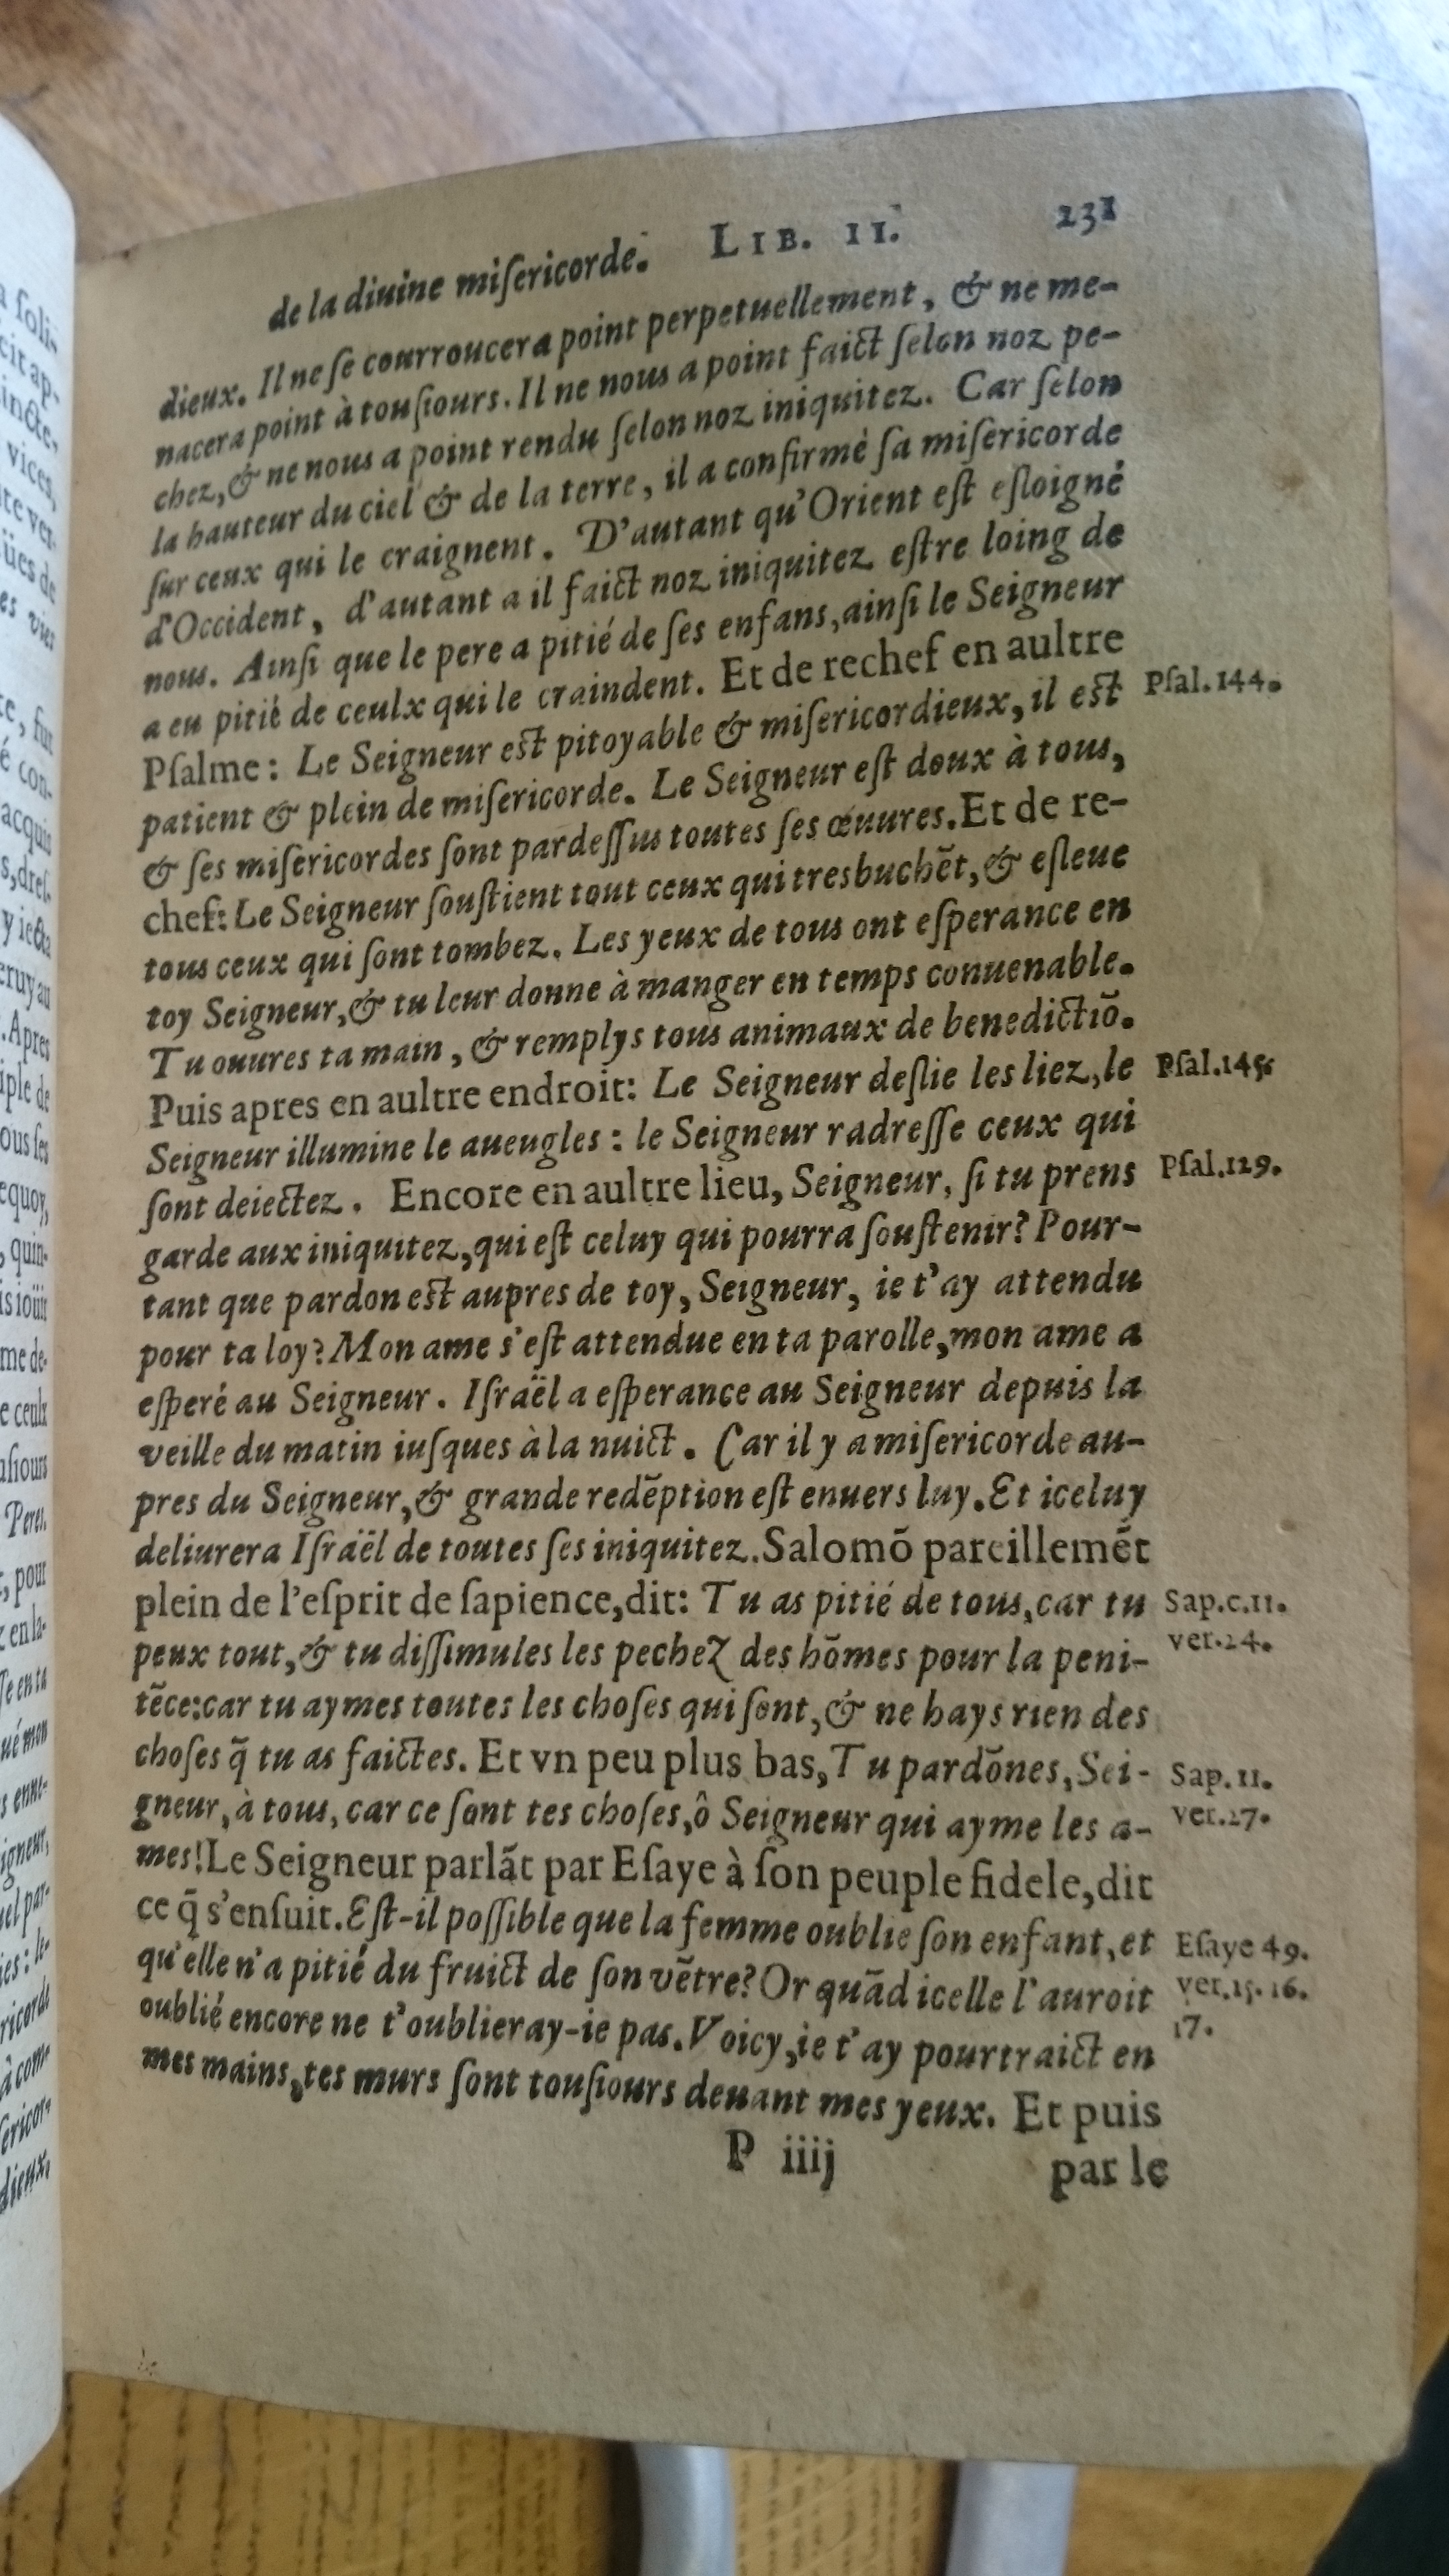 de la diuine miſericorde. LIB. II. 231
dieux. Il ne ſe courroucera point perpetuellement, & ne me-
nacera point à touſiours. Il ne nous a point faict ſelon noz pe-
chez, & ne nous a point rendu ſelon noz iniquitez. Car ſelon
la hauteur du ciel & de la terre, il a confirmè ſa miſericorde
ſur ceux qui le craignent. D'autant qu'Orient eſt eſloigné
d'Occident, d'autant a il faict noz iniquitez eſtre loing de
nous. Ainſi que le pere a pitié de ſes enfans, ainſi le Seigneur
a eu pitié de ceulx qui le craindent. Et de rechef en aultre
Pſalme: Le Seigneur eſt pitoyable & miſericordieux, il eſt
Pſal. 144.
patient & plein de miſericorde. Le Seigneur eſt doux à tous,
& ſes miſericordes ſont pardeſſus toutes ſes œuures. Et de re-
chef: Le Seigneur ſouſtient tout ceux qui tresbuchẽt, & eſleue
tous ceux qui ſont tombez. Les yeux de tous ont eſperance en
toy Seigneur, & tu leur donne à manger en temps conuenable.
Tu ouures ta main, & remplys tous animaux de benedictiõ.
Puis apres en aultre endroit: Le Seigneur deſlie les liez, le
Pſal. 145.
Seigneur illumine le aueugles: le Seigneur radreſſe ceux qui
ſont deiectez. Encore en aultre lieu, Seigneur, ſi tu prens
Pſal. 129.
garde aux iniquitez, qui eſt celuy qui pourra ſouſtenir? Pour-
tant que pardon eſt aupres de toy, Seigneur, ie t'ay attendu
pour ta loy? Mon ame s'eſt attendue en ta parolle, mon ame a
eſperé au Seigneur. Iſraël a eſperance au Seigneur depuis la
veille du matin iuſques à la nuict. Car il y a miſericorde au-
pres du Seigneur, & grande redẽption eſt enuers luy. Et iceluy
deliurera Iſraël de toutes ſes iniquitez. Salomõ pareillemẽt
plein de l'eſprit de ſapience, dit: Tu as pitié de tous, car tu
Sap. c. 11.
ver. 24.
peux tout, & tu diſſimules les pechez des hõmes pour la peni-
tẽce: car tu aymes toutes les choſes qui ſont, & ne hays rien des
choſes q̃ tu as faictes. Et vn peu plus bas, Tu pardõnes, Sei-
Sap. 11.
ver. 27.
gneur, à tous, car ce ſont tes choſes, ô Seigneur qui ayme les a-
mes! Le Seigneur parlãt par Eſaye à ſon peuple fidele, dit
ce q̃ s'enſuit. Eſt-il poſſible que la femme oublie ſon enfant, et
Eſaye 49.
ver. 15. 16.
17.
qu'elle n'a pitié du fruict de ſon vẽtre? Or quãd icelle l'auroit
oublié encore ne t'oublieray-ie pas. Voicy, ie t'ay pourtraict en
mes mains, tes murs ſont touſiours deuant mes yeux. Et puis
P iiij
par le